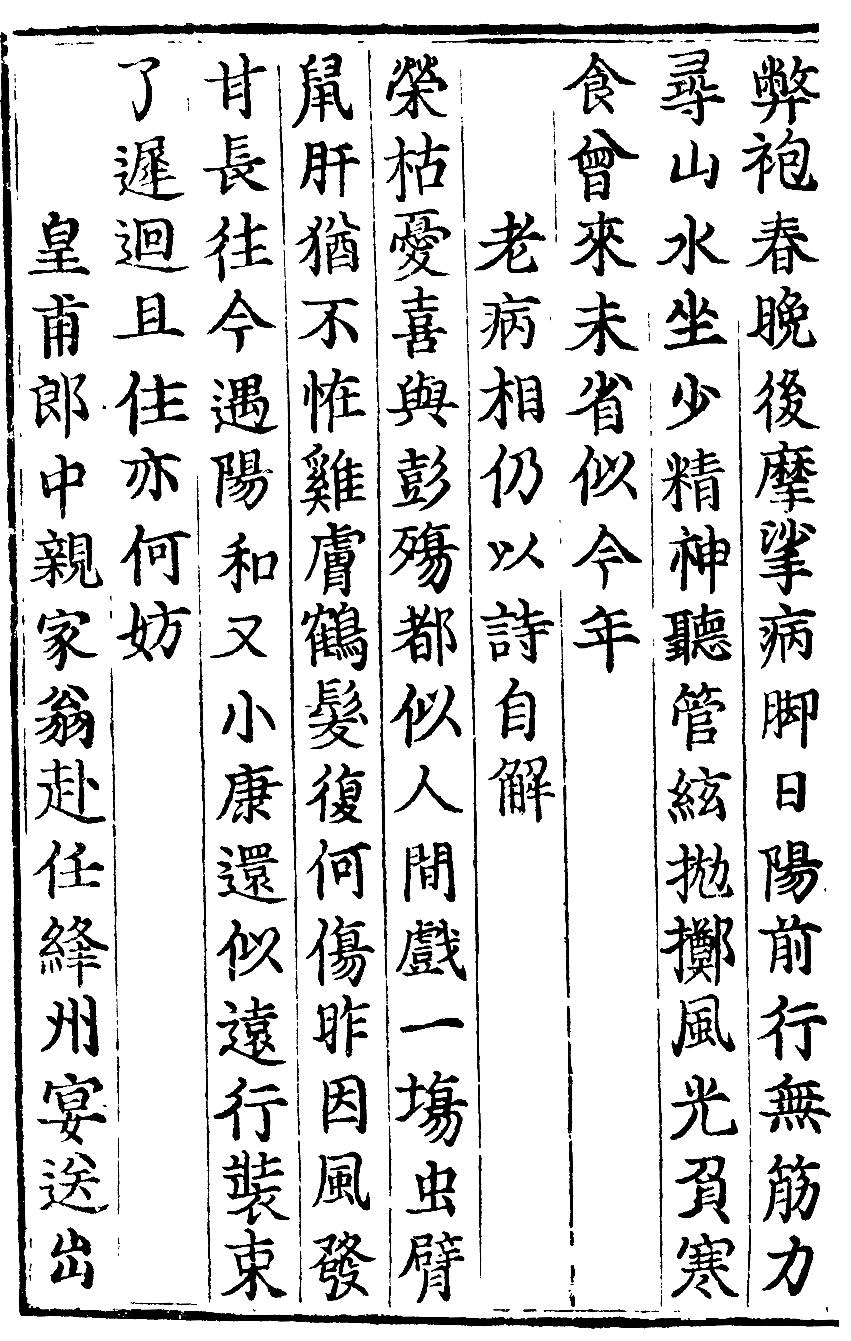 弊袍春晚後摩挲病脚日陽前行無筋力
尋山水坐少精神聽管絃拋擲風光負寒
食曾來未省似今年
老病相仍以詩自解
榮枯憂喜與彭殤都似人間戲一塲虫臂
䑕肝猶不恠雞膚鶴髮復何傷昨因風發
甘長往今遇陽和又小康還似遠行裝束
了遲迴且住亦何妨
皇甫郎中親家翁赴任絳州宴送出